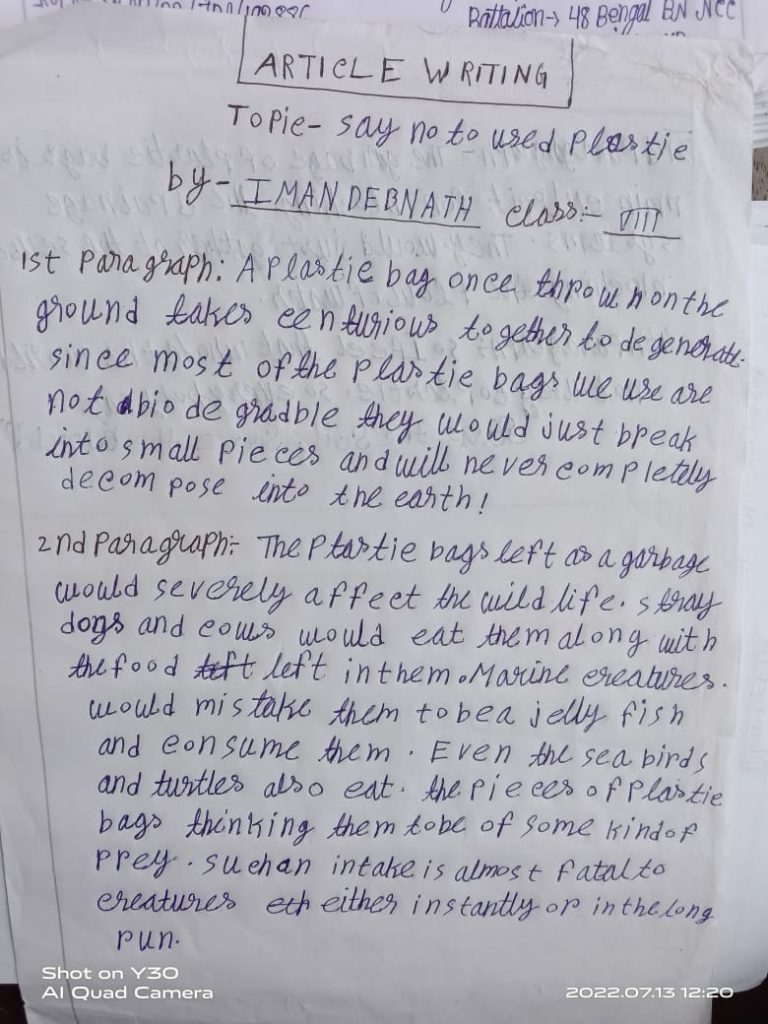 Battalion → 48 Bengal BN NCC
ARTICLE WRITING
Topic - say no to used Plastic
by - IMAN DEBNATH class:- VIII
1st Paragraph: A Plastic bag once thrown on the
ground takes centurious together to degenerate.
since most of the Plastic bags we use are
not abio de gradble they would just break
into small pieces and will never completely
decompose into the earth!
2nd Paragraph:- The Plastic bags left as a garbage
would severely affect the wild life. stray
dogs and cows would eat them along with
the food left left in them. Marine creatures.
would mistake them to be a jelly fish
and consume them. Even the sea birds
and turtles also eat. the pieces of Plastic
bags thinking them to be of some kind of
prey. such an intake is almost fatal to
creatures eth either instantly or in the long
run.
Shot on Y30
AI Quad Camera
2022.07.13 12:20